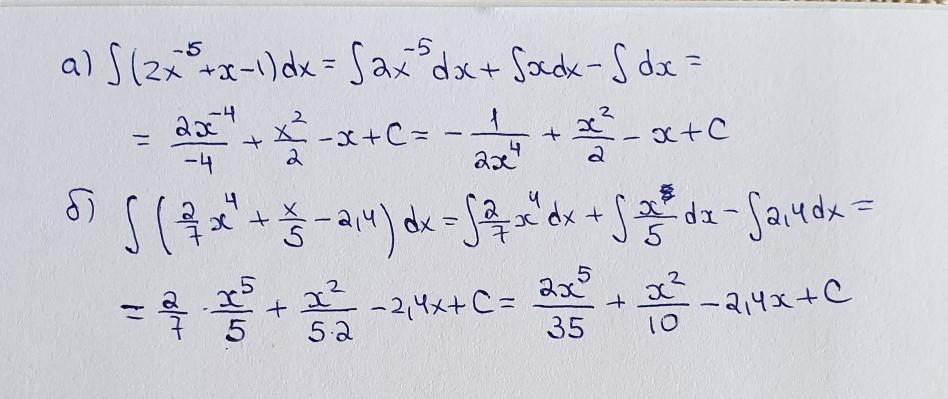 а) ∫(2x⁻⁵+x-1)dx = ∫2x⁻⁵dx + ∫xdx - ∫dx =
= 2x⁻⁴/-4 + x²/2 - x + C = - 1/2x⁴ + x²/2 - x + C
б) ∫(2/7 x⁴ + x/5 - 2,4) dx = ∫2/7 x⁴dx + ∫x/5 dx - ∫2,4dx =
= 2/7 · x⁵/5 + x²/5·2 - 2,4x + C = 2x⁵/35 + x²/10 - 2,4x + C